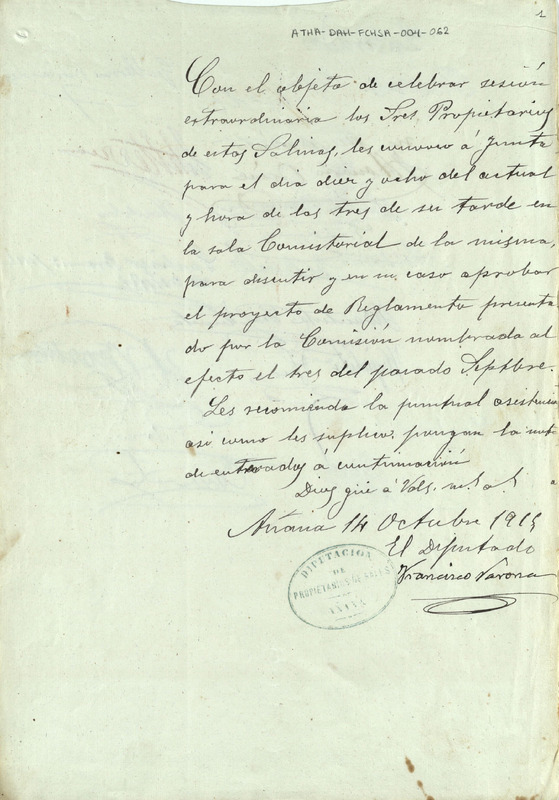 1
ATHA-DAH-FCHSA-004-062
Con el objeto de celebrar sesión
extraordinaria los Sres Propietarios
de estas Salinas, les convoco á Junta
para el dia diez y ocho del actual
y hora de las tres de su tarde en
la sala Consistorial de la misma,
para discutir y en su caso aprobar
el proyecto de Reglamento presenta-
do por la Comisión nombrada al
efecto el tres del pasado Septbre.
Les recomienda la puntual asistencia
asi como les suplico, pongan la nota
de enterados á continuación
Dios gue á Vds. m. a.
Añana 14 Octubre 1915
El Diputado
Francisco Varona
DIPUTACION
DE
PROPIETARIOS DE SALES
AÑANA